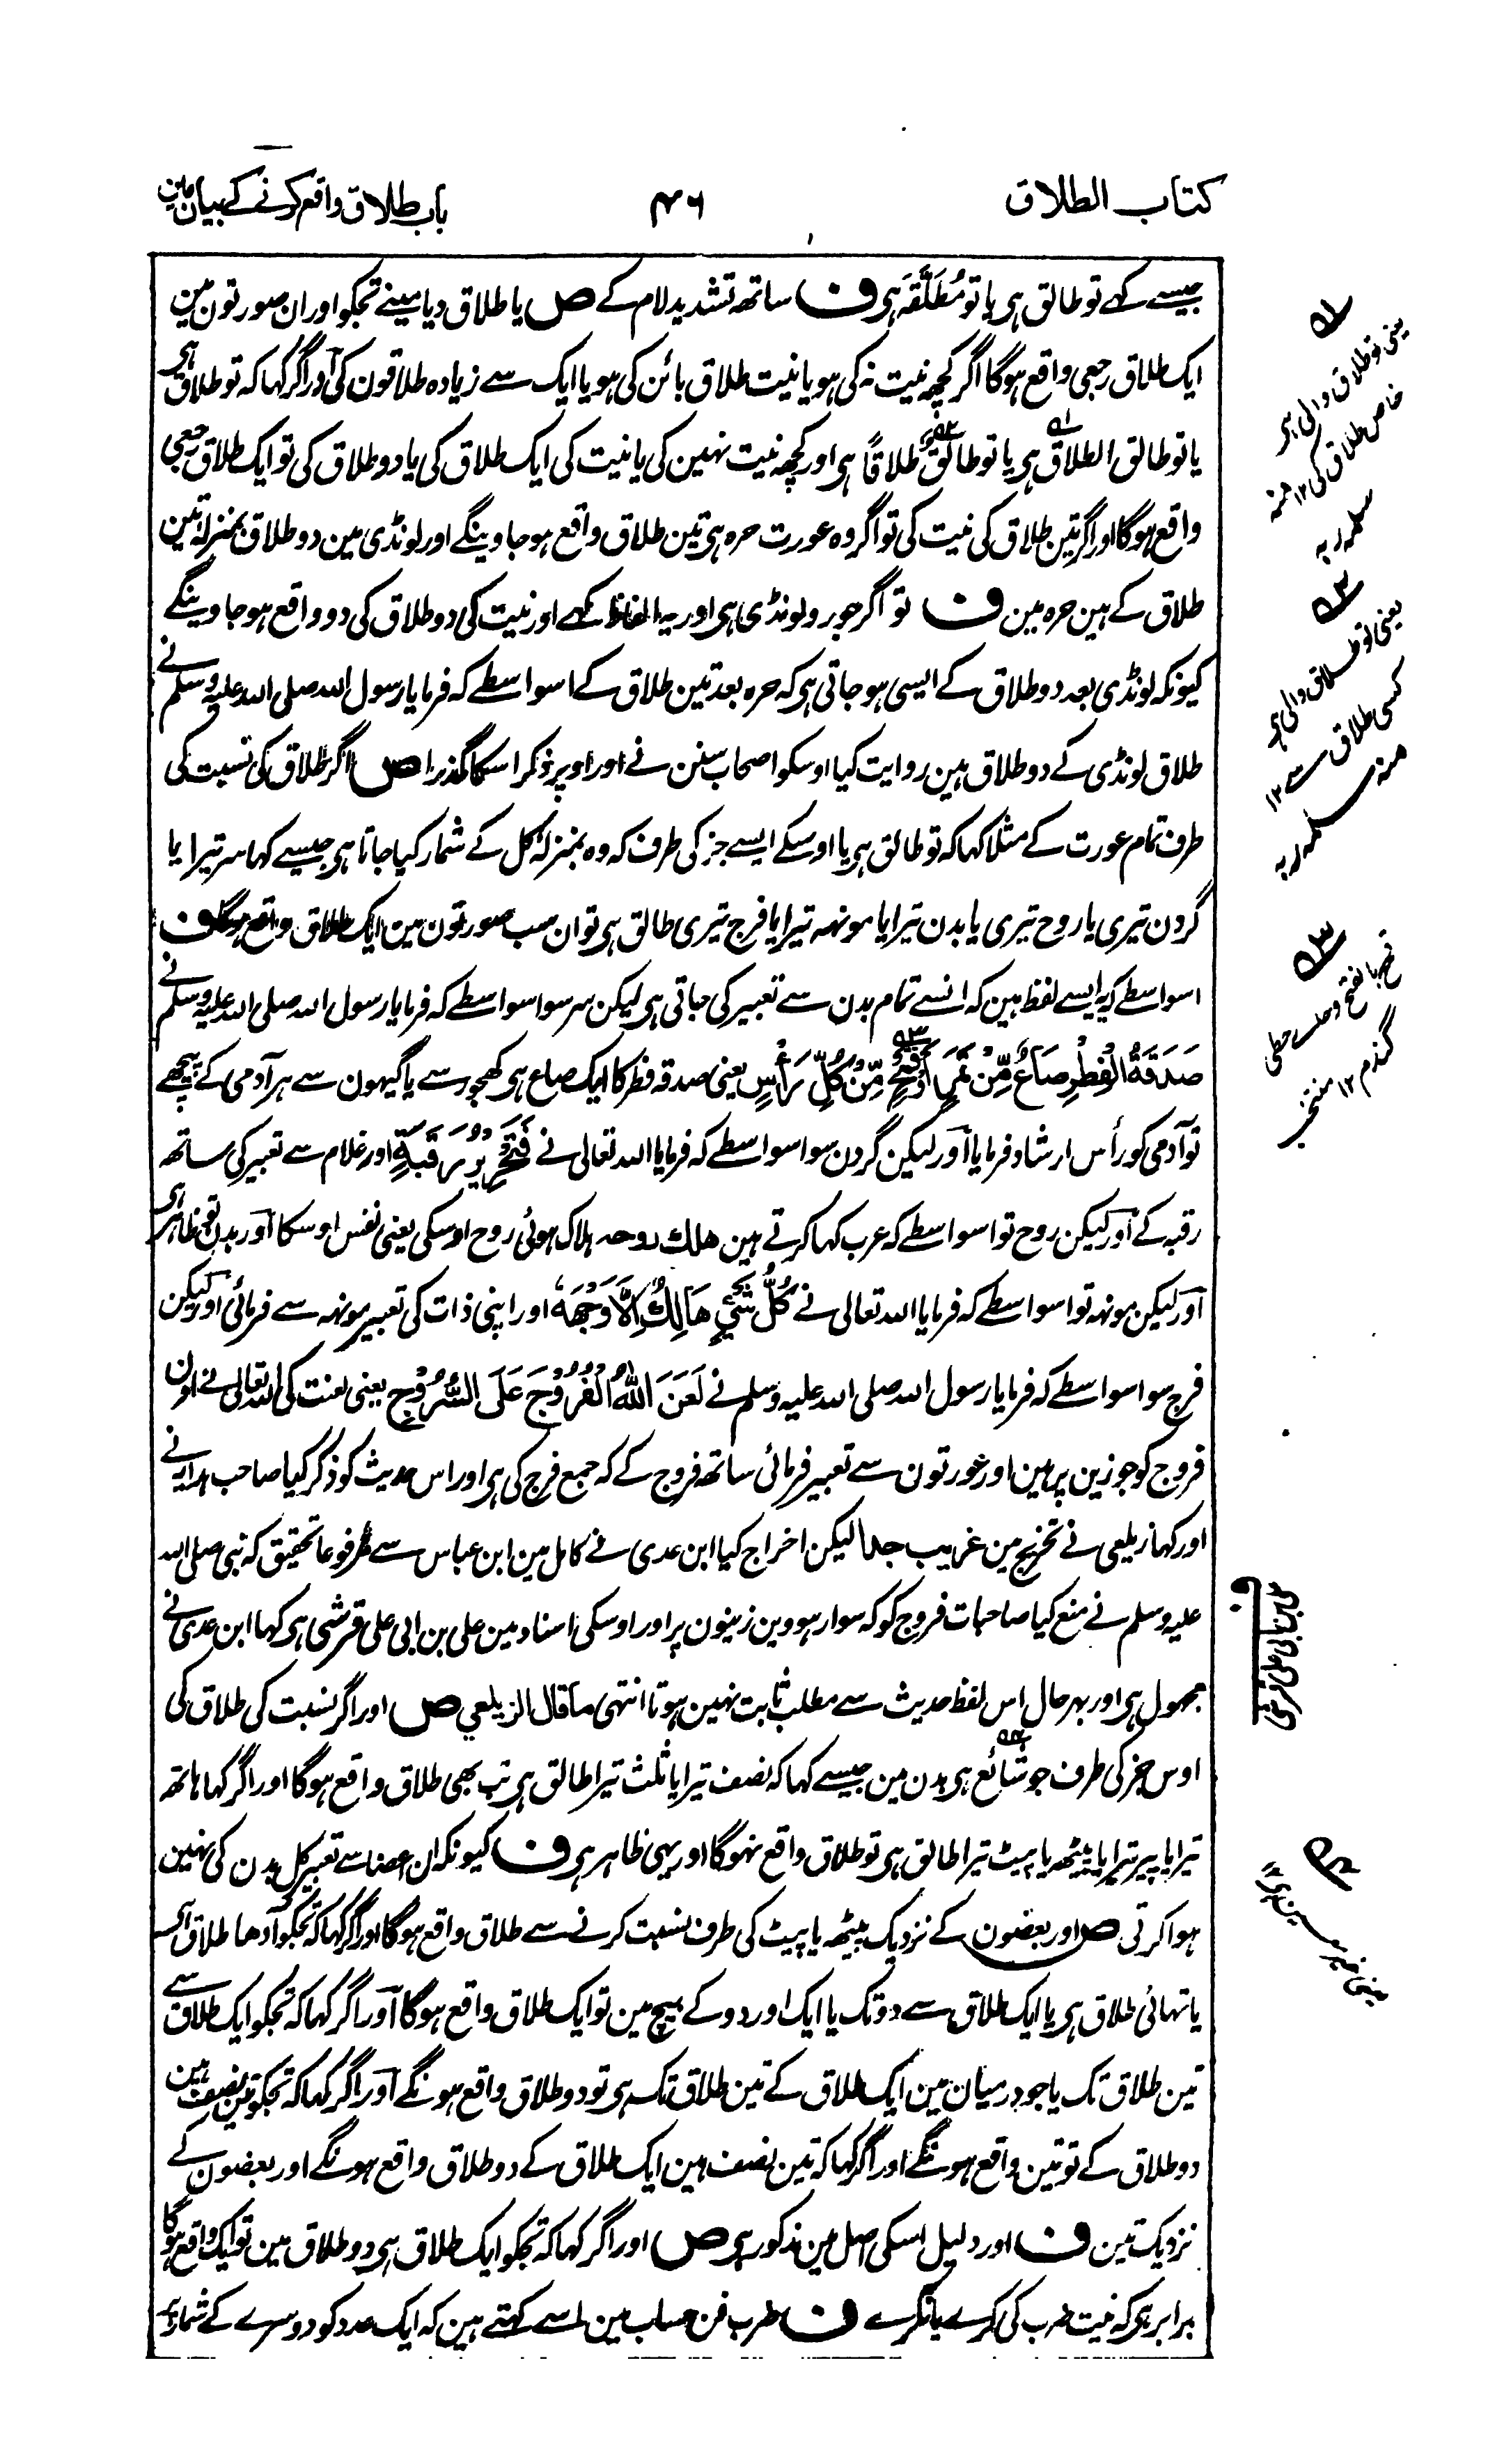 کتاب الطلاق
۴۶
باب طلاق واقع کرنے کے بیان مین
جیسے کہے تو طالق ہی یا تو مُطَلَّقَہ ہی ف ساتھ تشدید لام کے ص یا طلاق دیا مینے تجکو اور ان صورتون مین
ایک طلاق رجعی واقع ہوگا اگر کچھ نیت نہ کی ہو یا نیت طلاق بائن کی ہو یا ایک سے زیادہ طلاقون کی آور اگر کہا کہ تو طلاق ہی
یا تو طالق الطلاق ہی یا تو طالق طلاقاً ہی اور کچھ نیت نہین کی یا نیت کی ایک طلاق کی یا دو طلاق کی تو ایک طلاق رجعی
واقع ہوگا اور اگر تین طلاق کی نیت کی تو اگر وہ عورت حرہ ہی تین طلاق واقع ہو جاوینگے اور لونڈی مین دو طلاق بمنزلہ تین
طلاق کے ہین حرہ مین ف تو اگر جورو لونڈی ہی اور یہ الفاظ کہے اور نیت کی دو طلاق کی دو واقع ہو جاوینگے
کیونکہ لونڈی بعد دو طلاق کے ایسی ہو جاتی ہی کہ حرہ بعد تین طلاق کے اسواسطے کہ فرمایا رسول اللہ صلی اللہ علیہ وسلم نے
طلاق لونڈی کے دو طلاق ہین روایت کیا اوسکو اصحاب سنن نے اور اوپر ذکر اسکا گذرا ص اگر طلاق کی نسبت کی
طرف تمام عورت کے مثلا کہا کہ تو طالق ہی یا اوسکے ایسے جز کی طرف کہ وہ بمنزلہ کل کے شمار کیا جاتا ہی جیسے کہا سر تیرا یا
گردن تیری یا روح تیری یا بدن تیرا یا مونہہ تیرا یا فرج تیری طالق ہی تو ان سب صورتون مین ایک طلاق واقع ہوگا ف
اسواسطے کہ یہ ایسے لفظ ہین کہ انسے تمام بدن سے تعبیر کی جاتی ہی لیکن سر سو اسواسطے کہ فرمایا رسول اللہ صلی اللہ علیہ وسلم نے
صَدَقَةُ الْفِطْرِ صَاعٌ مِّنْ تَمْرٍ اَوْ قَمْحٍ مِّنْ كُلِّ رَأْسٍ یعنی صدقہ فطر کا ایک صاع ہی کھجور سے یا گیہون سے ہر آدمی کے پیچھے
تو آدمی کو رأس ارشاد فرمایا آور لیکن گردن سو اسواسطے کہ فرمایا اللہ تعالی نے فَتَحْرِيْرُ رَقَبَةٍ اور غلام سے تعبیر کی ساتھ
رقبہ کے آور لیکن روح تو اسواسطے کہ عرب کہا کرتے ہین هلك روحه ہلاک ہوئی روح اوسکی یعنی نفس اوسکا آور بدن تو ظاہر ہی
آور لیکن مونہہ تو اسواسطے کہ فرمایا اللہ تعالی نے كُلُّ شَيْءٍ هَالِكٌ اِلَّا وَجْهَهٗ اور اپنی ذات کی تعبیر مونہہ سے فرمائی اور لیکن
فرج سو اسواسطے کہ فرمایا رسول اللہ صلی اللہ علیہ وسلم نے لَعَنَ اللّٰهُ الْفُرُوْجَ عَلَى السُّرُوْجِ یعنی لعنت کی اللہ تعالی نے اون
فروج کو جو زین پر ہین اور عورتون سے تعبیر فرمائی ساتھ فروج کے کہ جمع فرج کی ہی اور اس حدیث کو ذکر کیا صاحب ہدایہ نے
اور کہا زیلعی نے تخریج مین غریب جدا لیکن اخراج کیا ابن عدی نے کامل مین ابن عباس سے مرفوعا تحقیق کہ نبی صلی اللہ
علیہ وسلم نے منع کیا صاحبات فروج کو کہ سوار ہووین زینون پر اور اوسکی اسناد مین علی بن ابی علی قرشی ہی کہا ابن عدی نے
مجہول ہی اور بہر حال اس لفظ حدیث سے مطلب ثابت نہین ہوتا انتہی ما قال الزیلعی ص اور اگر نسبت کی طلاق کی
اوس جز کی طرف جو شائع ہی بدن مین جیسے کہا کہ نصف تیرا یا ثلث تیرا طالق ہی تب بھی طلاق واقع ہوگا اور اگر کہا ہاتھ
تیرا یا پیر تیرا یا پیٹھ یا پیٹ تیرا طالق ہی تو طلاق واقع نہوگا اور یہی ظاہر ہی ف کیونکہ ان اعضا سے تعبیر کل بدن کی نہین
ہوا کرتی ص اور بعضون کے نزدیک پیٹھ یا پیٹ کی طرف نسبت کرنے سے طلاق واقع ہوگا اور اگر کہا کہ تجکو آدھا طلاق ہی
یا تہائی طلاق ہی یا ایک طلاق سے دو تک یا ایک اور دو کے بیچ مین تو ایک طلاق واقع ہوگا آور اگر کہا کہ تجکو ایک طلاق سے
تین طلاق تک یا جو درمیان مین ایک طلاق کے تین طلاق تک ہی تو دو طلاق واقع ہونگے آور اگر کہا کہ تجکو تین نصف ہین
دو طلاق کے تو تین واقع ہونگے اور اگر کہا کہ تین نصف ہین ایک طلاق کے دو طلاق واقع ہونگے اور بعضون کے
نزدیک تین ف اور دلیل اسکی اصل مین مذکور ہی ص اور اگر کہا کہ تجکو ایک طلاق ہی دو طلاق مین تو ایک واقع ہوگا
برابر ہی کہ نیت ضرب کی کرے یا نکرے ف ضرب فن حساب مین اسے کہتے ہین کہ ایک عدد کو دوسرے کے شمار
یعنی تو طلاق والی ہی
خاص طلاق کی ۱۲ منہ
سلمہ ربہ
یعنی تو طلاق والی ہی
کسی طلاق سے ۱۲
منہ سلمہ ربہ
قمح بالفتح
گندم ۱۲ منتخب
علی بن ابی علی قرشی